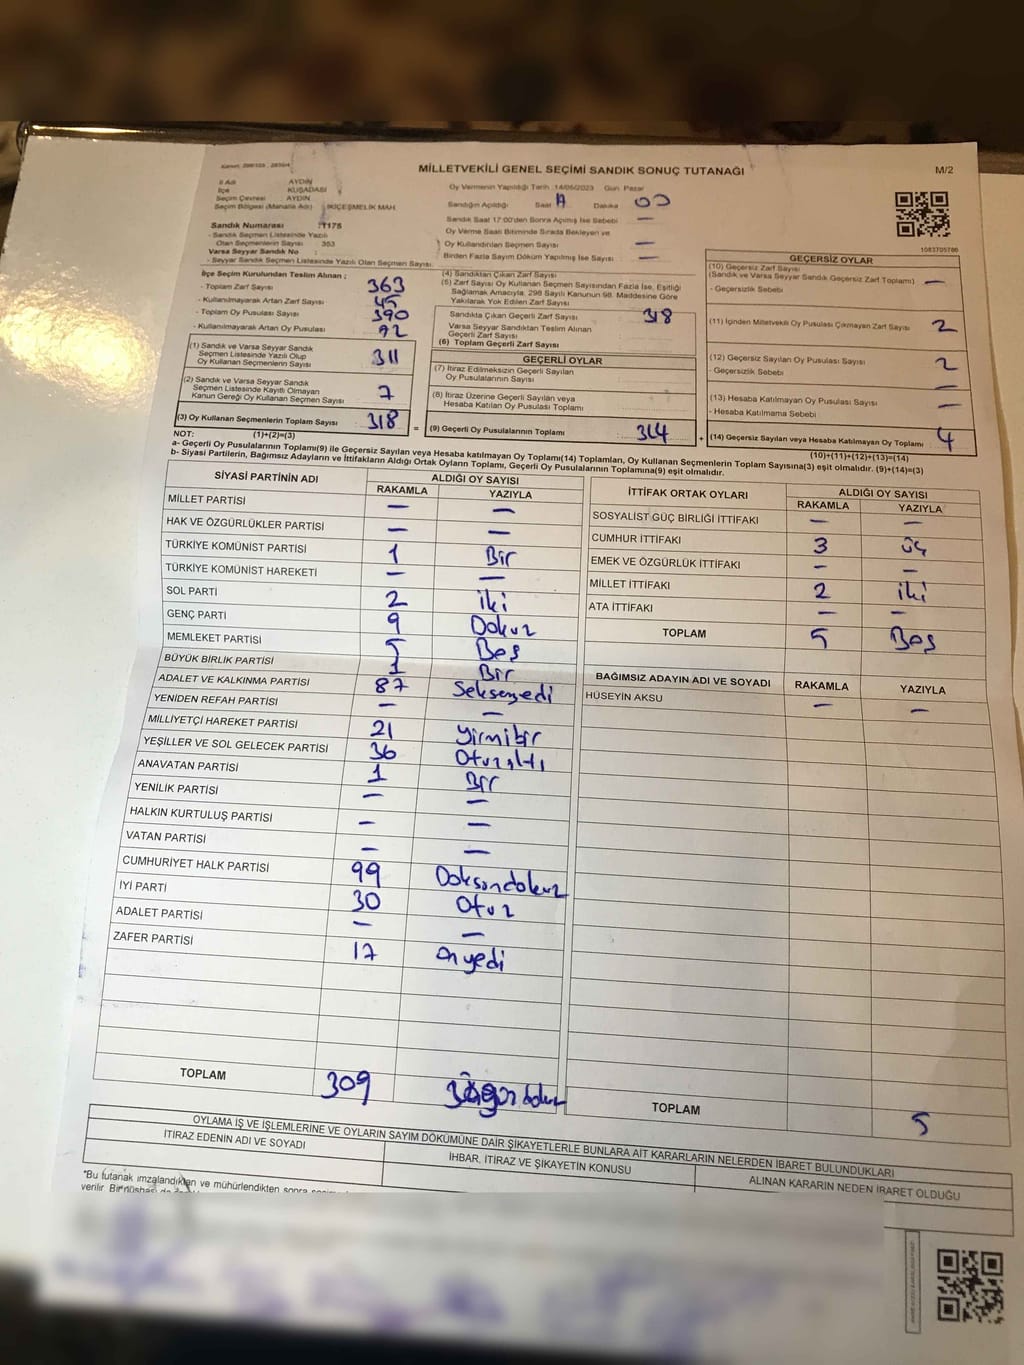 MİLLETVEKİLİ GENEL SEÇİMİ SANDIK SONUÇ TUTANAĞI
M/2
İl Adı AYDIN
İlçe KUŞADASI
Seçim Çevresi AYDIN
Seçim Bölgesi (Mahalle Adı) İKİÇEŞMELİK MAH.
Sandık Numarası :1175
- Sandık Seçmen Listesinde Yazılı
Olan Seçmenlerin Sayısı : 353
Varsa Seyyar Sandık No :
- Seyyar Sandık Seçmen Listesinde Yazılı Olan Seçmen Sayısı:
Oy Vermenin Yapıldığı Tarih :14/05/2023 Gün: Pazar
Sandığın Açıldığı Saat Dakika 00
Sandık Saat 17:00'den Sonra Açılmış İse Sebebi —
Oy Verme Saati Bitiminde Sırada Bekleyen ve
Oy Kullandırılan Seçmen Sayısı —
Birden Fazla Sayım Döküm Yapılmış İse Sayısı —
1083705786
İlçe Seçim Kurulundan Teslim Alınan ;
- Toplam Zarf Sayısı 363
- Kullanılmayarak Artan Zarf Sayısı 45
- Toplam Oy Pusulası Sayısı 390
- Kullanılmayarak Artan Oy Pusulası
(1) Sandık ve Varsa Seyyar Sandık
Seçmen Listesinde Yazılı Olup
Oy Kullanan Seçmenlerin Sayısı 311
(2) Sandık ve Varsa Seyyar Sandık
Seçmen Listesinde Kayıtlı Olmayan
Kanun Gereği Oy Kullanan Seçmen Sayısı 7
(3) Oy Kullanan Seçmenlerin Toplam Sayısı 318
(4) Sandıktan Çıkan Zarf Sayısı
(5) Zarf Sayısı Oy Kullanan Seçmen Sayısından Fazla İse, Eşitliği
Sağlamak Amacıyla, 298 Sayılı Kanunun 98. Maddesine Göre
Yakılarak Yok Edilen Zarf Sayısı
Sandıkta Çıkan Geçerli Zarf Sayısı 318
Varsa Seyyar Sandıktan Teslim Alınan
Geçerli Zarf Sayısı
(6) Toplam Geçerli Zarf Sayısı
GEÇERLİ OYLAR
(7) İtiraz Edilmeksizin Geçerli Sayılan
Oy Pusulalarının Sayısı
(8) İtiraz Üzerine Geçerli Sayılan veya
Hesaba Katılan Oy Pusulası Toplamı
= (9) Geçerli Oy Pusulalarının Toplamı 314
GEÇERSİZ OYLAR
(10) Geçersiz Zarf Sayısı
(Sandık ve Varsa Seyyar Sandık Geçersiz Zarf Toplamı) —
- Geçersizlik Sebebi
(11) İçinden Milletvekili Oy Pusulası Çıkmayan Zarf Sayısı 2
(12) Geçersiz Sayılan Oy Pusulası Sayısı 2
- Geçersizlik Sebebi —
(13) Hesaba Katılmayan Oy Pusulası Sayısı —
- Hesaba Katılmama Sebebi
+ (14) Geçersiz Sayılan veya Hesaba Katılmayan Oy Toplamı 4
NOT: (1)+(2)=(3)
(10)+(11)+(12)+(13)=(14)
a- Geçerli Oy Pusulalarının Toplamı(9) ile Geçersiz Sayılan veya Hesaba Katılmayan Oy Toplamı(14) Toplamları, Oy Kullanan Seçmenlerin Toplam Sayısına(3) eşit olmalıdır.
b- Siyasi Partilerin, Bağımsız Adayların ve İttifakların Aldığı Ortak Oyların Toplamı, Geçerli Oy Pusulalarının Toplamına(9) eşit olmalıdır. (9)+(14)=(3)
SİYASİ PARTİNİN ADI ALDIĞI OY SAYISI
RAKAMLA YAZIYLA
MİLLET PARTİSİ — —
HAK VE ÖZGÜRLÜKLER PARTİSİ — —
TÜRKİYE KOMÜNİST PARTİSİ 1 Bir
TÜRKİYE KOMÜNİST HAREKETİ — —
SOL PARTİ 2 iki
GENÇ PARTİ 9 Dokuz
MEMLEKET PARTİSİ 5 Beş
BÜYÜK BİRLİK PARTİSİ 1 Bir
ADALET VE KALKINMA PARTİSİ 87 Seksenyedi
YENİDEN REFAH PARTİSİ — —
MİLLİYETÇİ HAREKET PARTİSİ 21 yirmibir
YEŞİLLER VE SOL GELECEK PARTİSİ 36 Otuzaltı
ANAVATAN PARTİSİ 1 Bir
YENİLİK PARTİSİ — —
HALKIN KURTULUŞ PARTİSİ — —
VATAN PARTİSİ — —
CUMHURİYET HALK PARTİSİ 99 Doksandokuz
İYİ PARTİ 30 Otuz
ADALET PARTİSİ — —
ZAFER PARTİSİ 17 onyedi
TOPLAM 309
İTTİFAK ORTAK OYLARI ALDIĞI OY SAYISI
RAKAMLA YAZIYLA
SOSYALİST GÜÇ BİRLİĞİ İTTİFAKI — —
CUMHUR İTTİFAKI 3 üç
EMEK VE ÖZGÜRLÜK İTTİFAKI — —
MİLLET İTTİFAKI 2 iki
ATA İTTİFAKI — —
TOPLAM 5 Beş
BAĞIMSIZ ADAYIN ADI VE SOYADI RAKAMLA YAZIYLA
HÜSEYİN AKSU — —
TOPLAM 5
OYLAMA İŞ VE İŞLEMLERİNE VE OYLARIN SAYIM DÖKÜMÜNE DAİR ŞİKAYETLERLE BUNLARA AİT KARARLARIN NELERDEN İBARET BULUNDUKLARI
İTİRAZ EDENİN ADI VE SOYADI İHBAR, İTİRAZ VE ŞİKAYETİN KONUSU ALINAN KARARIN NEDEN İBARET OLDUĞU
*Bu tutanak imzalandıktan ve mühürlendikten sonra
verilir. Bir nüshası da